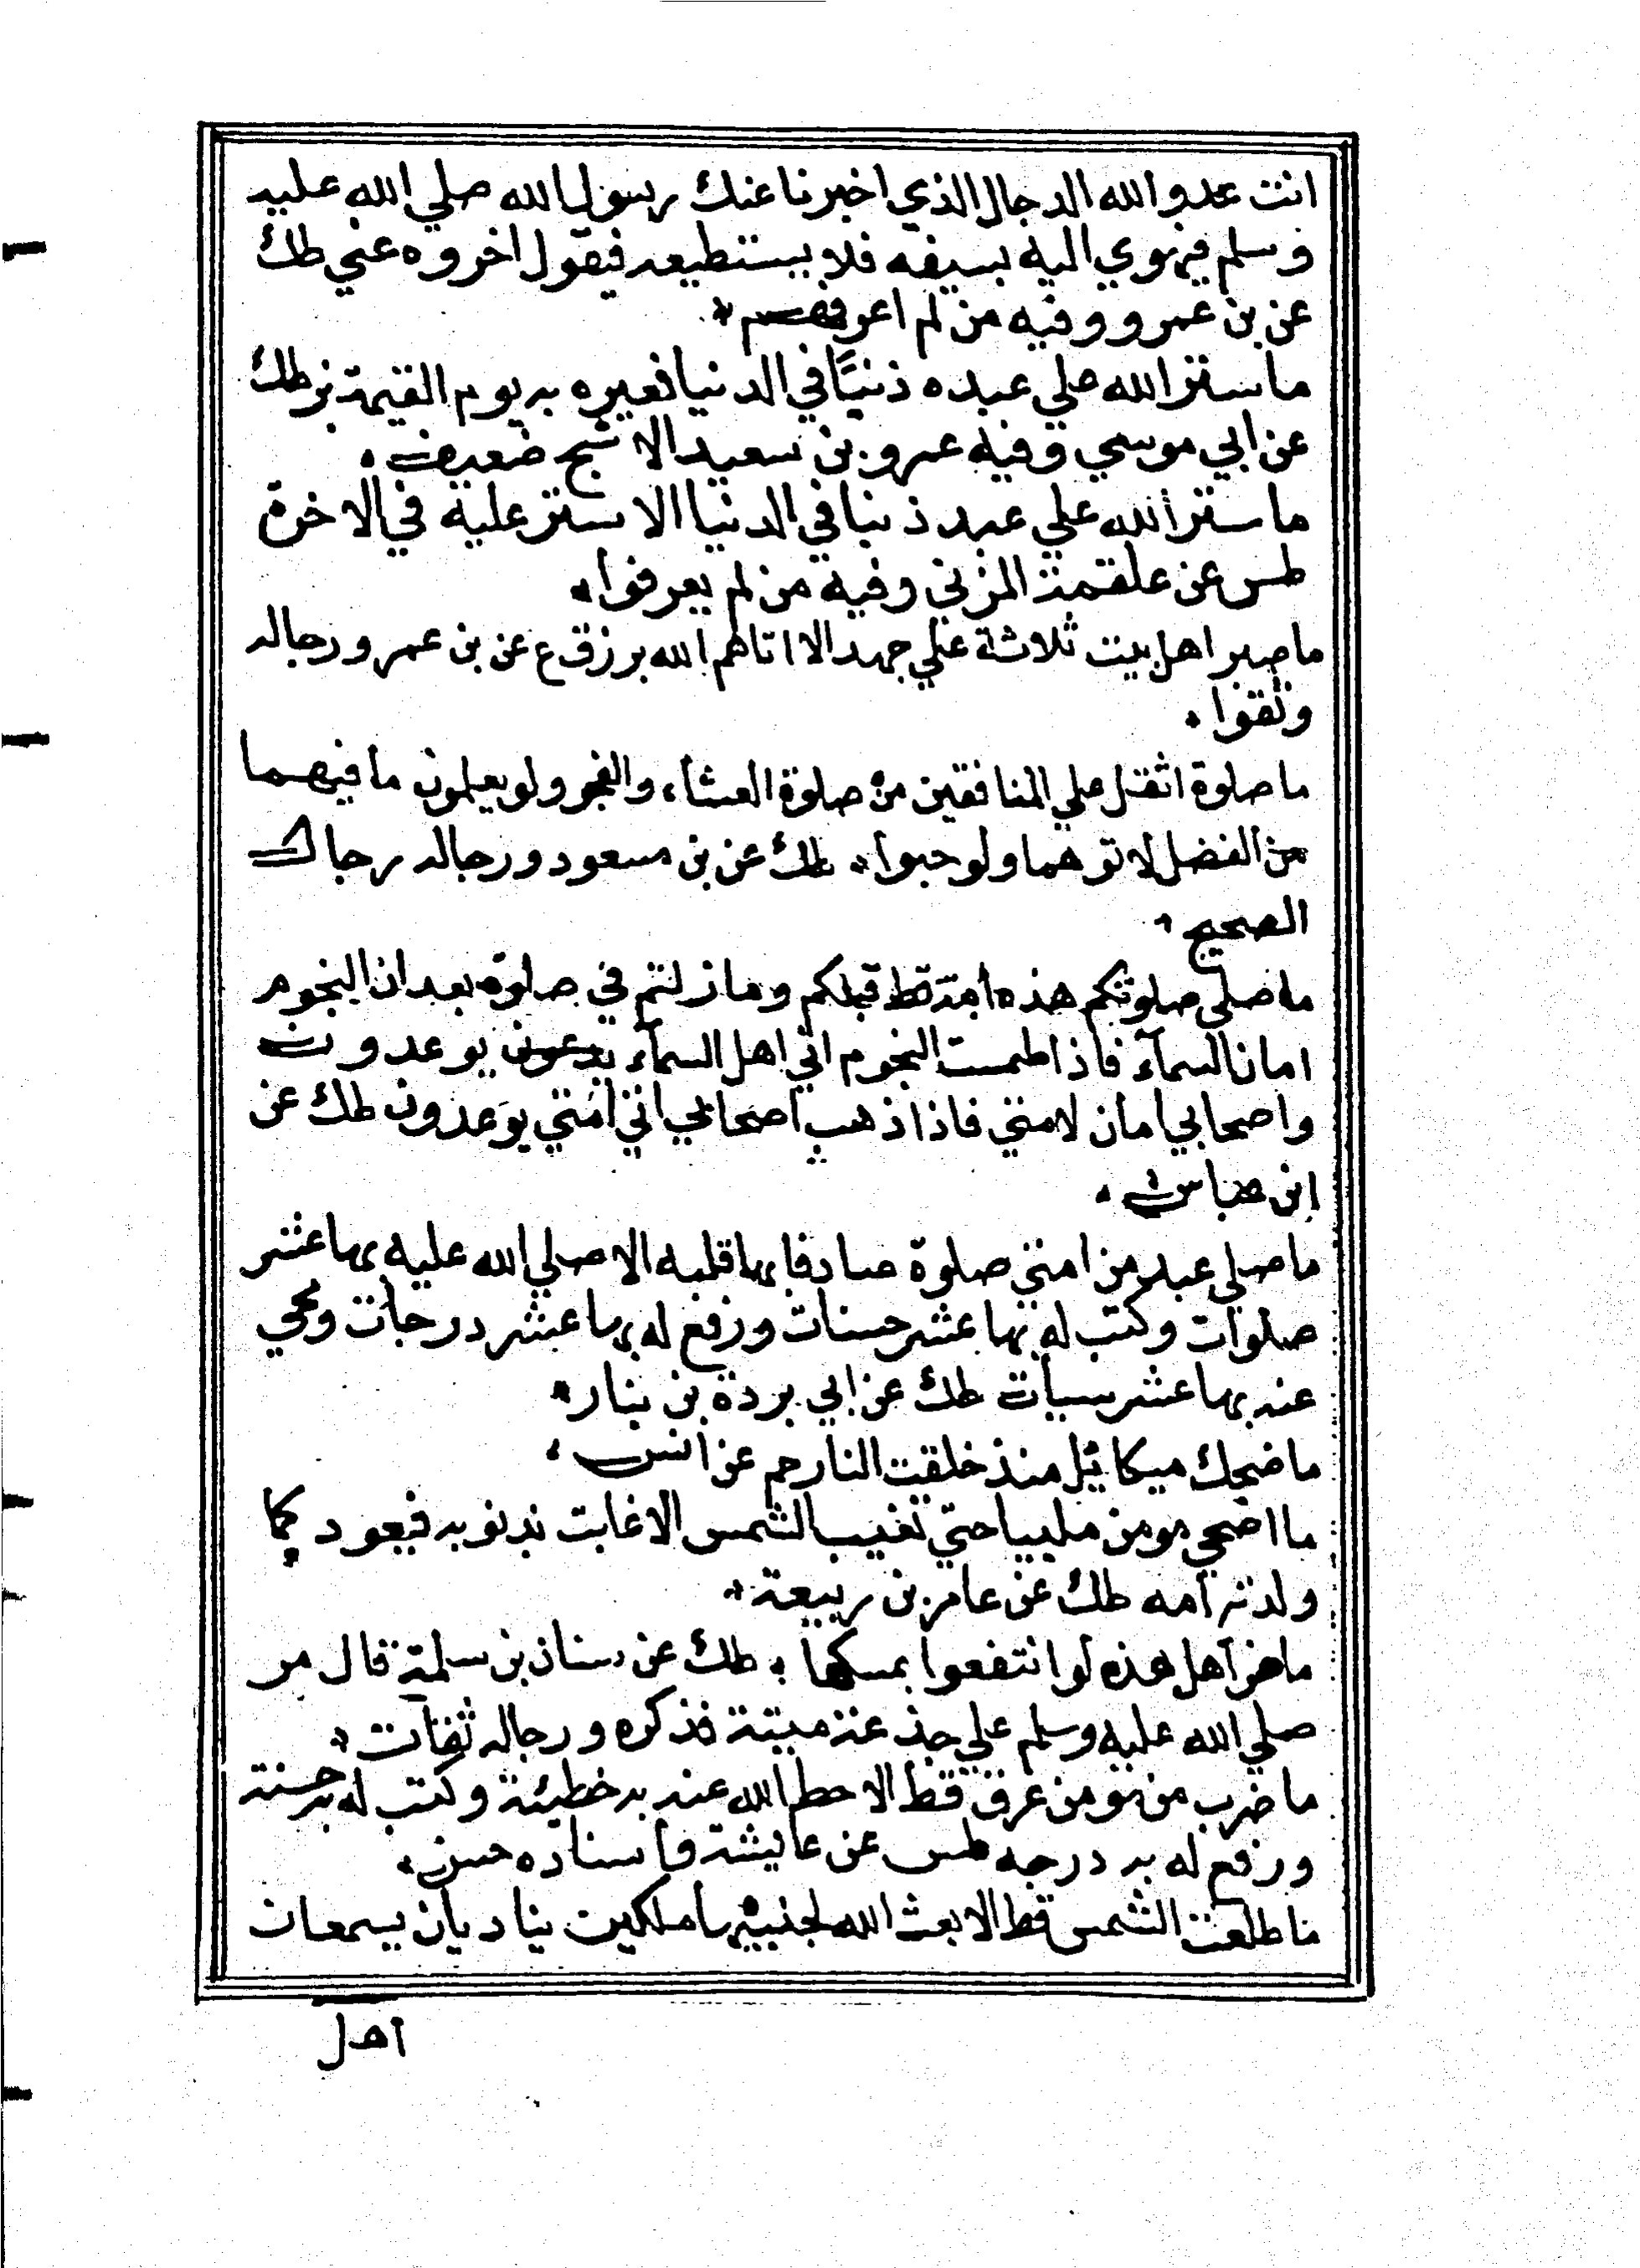 انت عدو الله الدجال الذي اخبرنا عنك رسول الله صلي الله عليه
وسلم فيهوي اليه بسيفه فلا يستطيعه فيقول اخروه عني طك
عن بن عمرو وفيه من لم اعرفهم
ما ستر الله علي عبده ذنبًا في الدنيا فعيره به يوم القيمة بز طك
عن ابي موسي وفيه عمرو بن سعيد الاشج ضعيف
ما ستر الله علي عبد ذنبا في الدنيا الا ستر عليه في الاخرة
طس عن علقمة المزني وفيه من لم يعرفوا
ما صبر اهل بيت ثلاثة علي جهد الا اتاهم الله برزق ع عن بن عمر ورجاله
وثقوا
ما صلوة اثقل علي المنافقين من صلوة العشاء والفجر ولو يعلمون ما فيهما
من الفضل لاتوهما ولو حبوا طك عن بن مسعود ورجاله رجال
الصحيح
ما صلي صلوتكم هذه امة قط قبلكم وما زلتم في صلوة بعد ان النجوم
امان السمآء فاذا طمست النجوم اتي اهل السمآء يوعدون
واصحابي امان لامتي فاذا ذهب اصحابي اتي امتي يوعدون طك عن
ابن عباس
ما صلي عبد من امتي صلوة صادقا بها قلبه الا صلي الله عليه بها عشر
صلوات وكتب له بها عشر حسنات ورفع له بها عشر درجات ومحي
عنه بها عشر سيأت طك عن ابي بردة بن نيار
ما ضحك ميكائيل منذ خلقت النار حم عن انس
ما اضحي مومن ملبيا حتي تغيب الشمس الا غابت بذنوبه فيعود كما
ولدته امه طك عن عامر بن ربيعة
ما ضر اهل هذه لو انتفعوا بمسكها طك عن سنان بن سلمة قال مر
صلي الله عليه وسلم علي جذعة ميتة فذكره ورجاله ثقات
ما ضرب من مومن عرق قط الا حط الله عنه به خطيئة وكتب له به حسنة
ورفع له به درجه طس عن عايشة واسناده حسن
ما طلعت الشمس قط الا بعث الله لجنبيها ملكين يناديان يسمعان
اهل